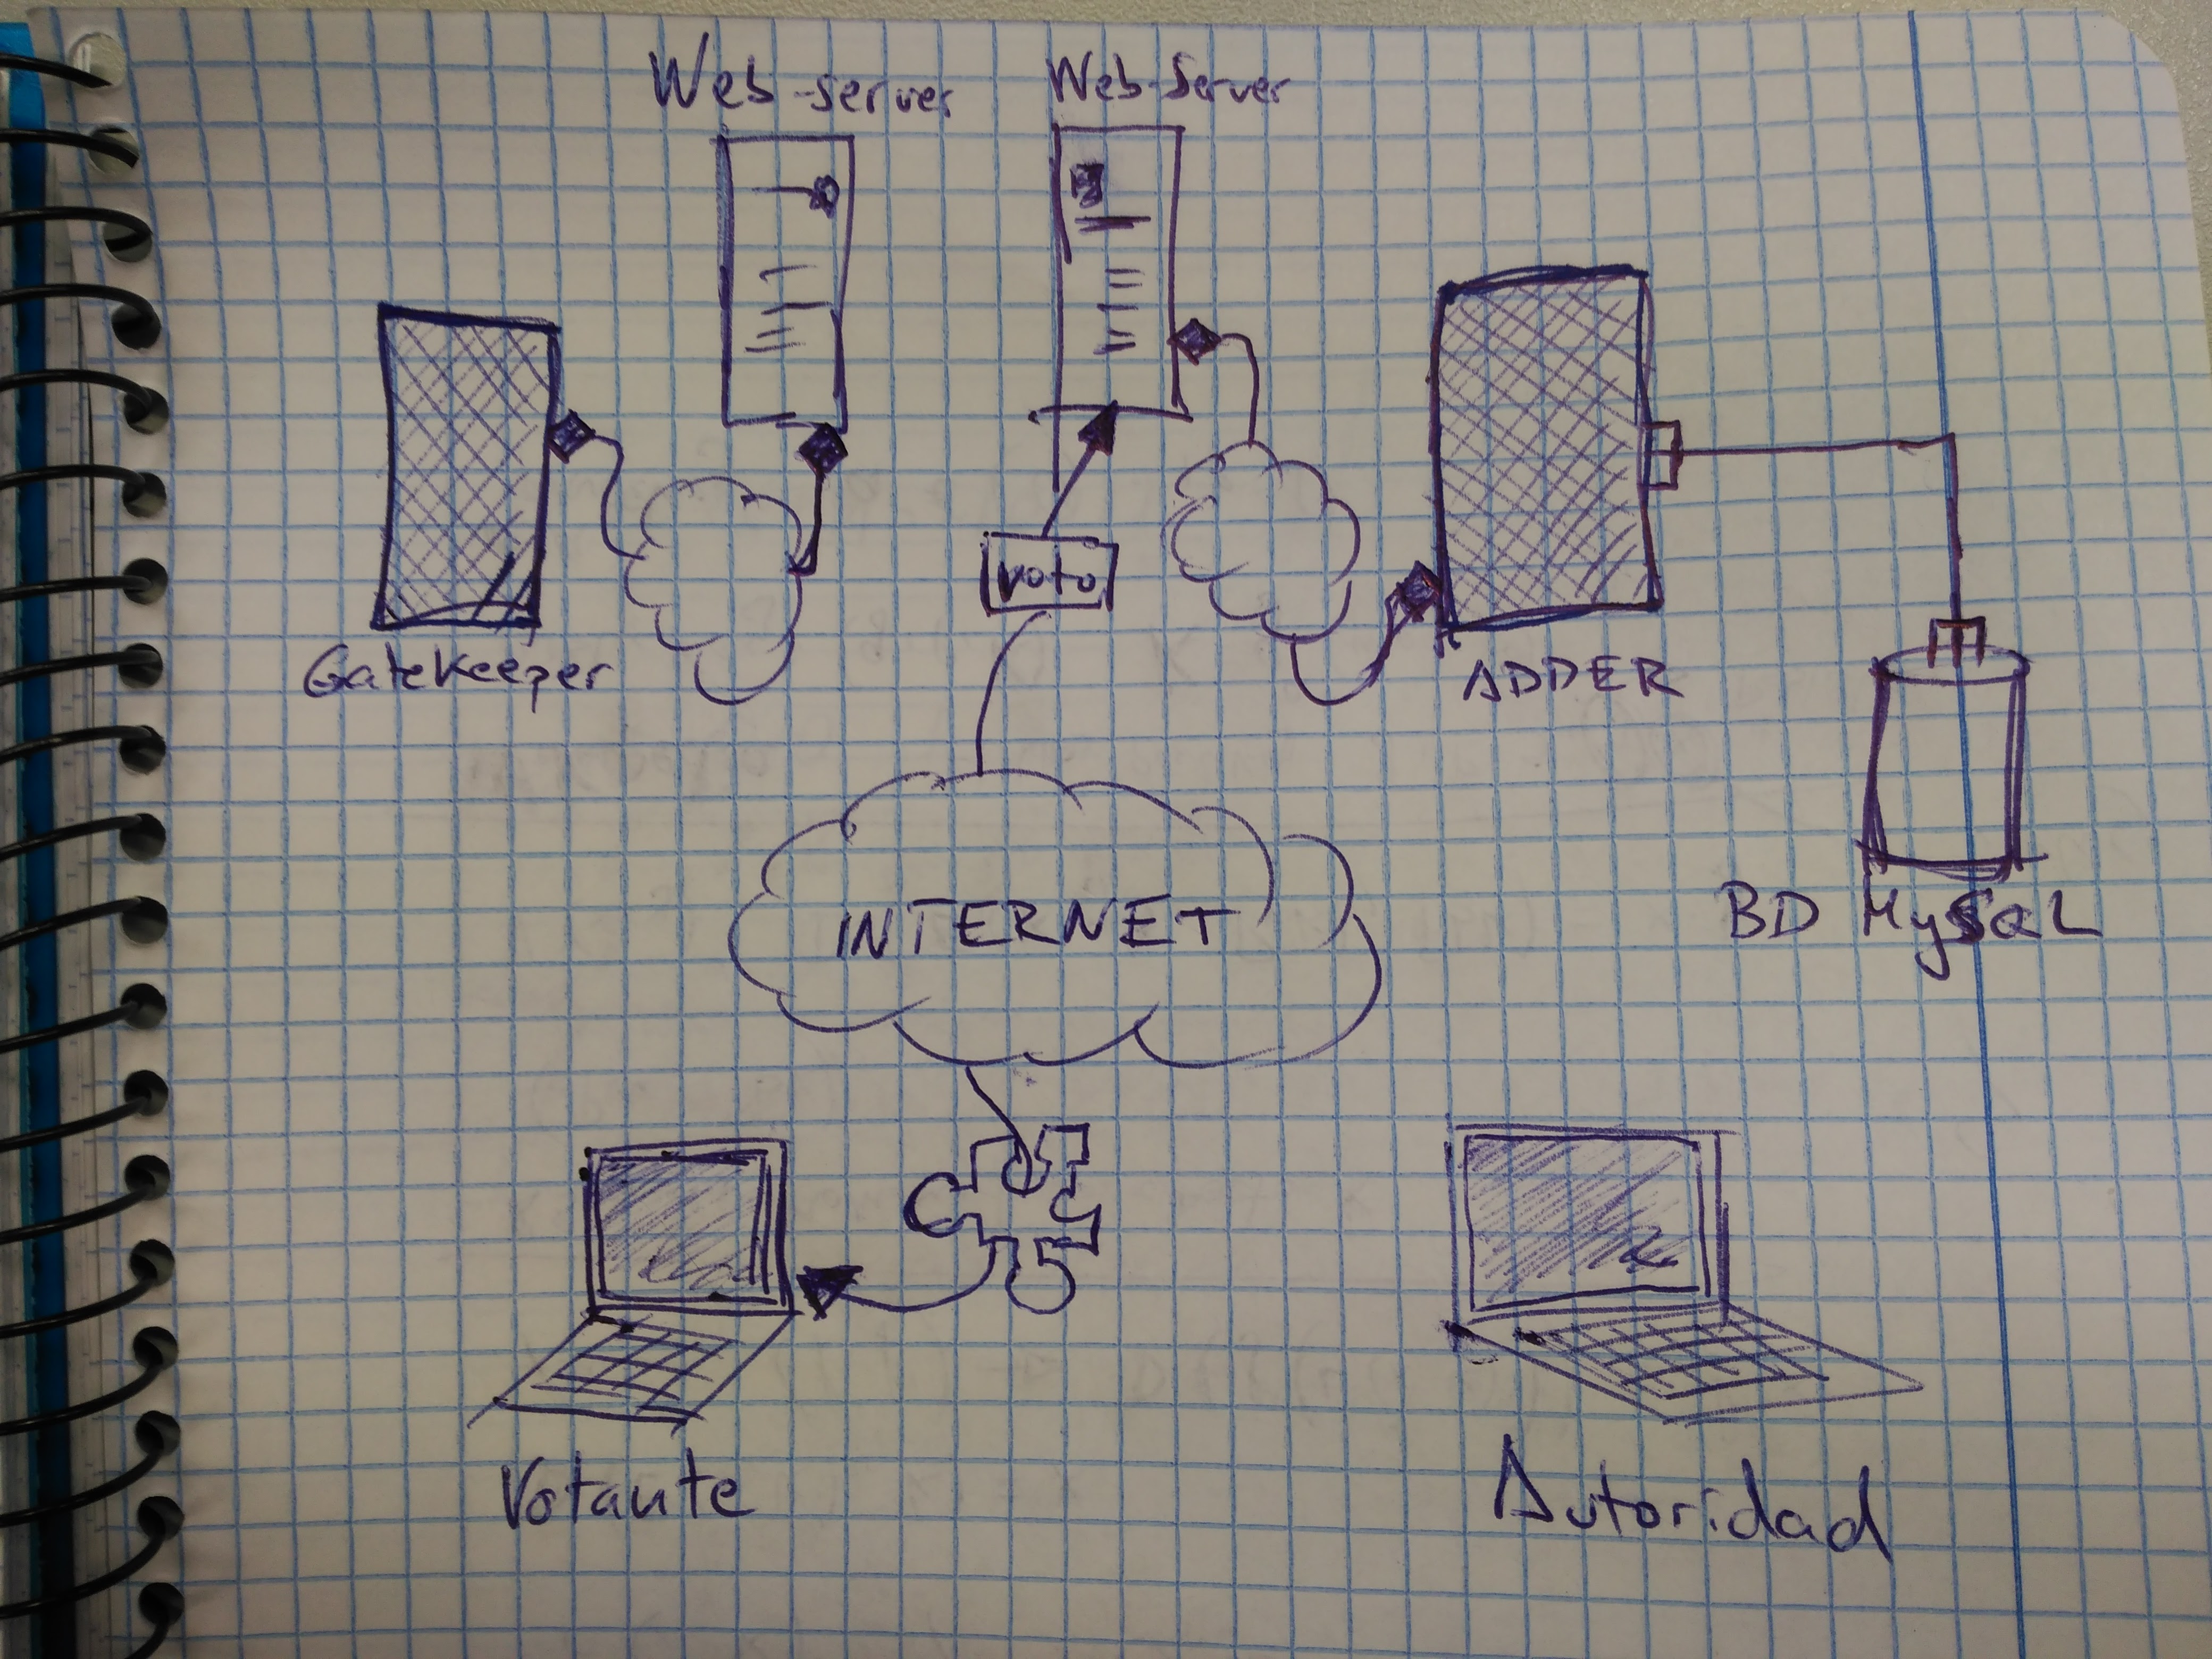 Web-server
Web-Server
voto
Gatekeeper
ADDER
BD MySQL
INTERNET
Votante
Autoridad